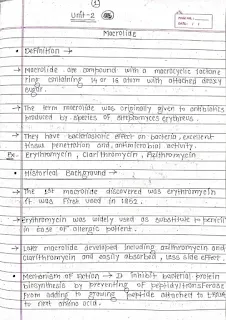 (1)
Unit-2
Macrolide
• Definition →
→ Macrolide are compound with a macrocyclic lactone
ring containing 14 or 16 atom with attached deoxy
sugar.
→ The term macrolide was originally given to antibiotics
produced by species of streptomyces erythreus.
→ They have bacteriostatic effect on bacteria, excellent
tissue penetration and antimicrobial activity.
Ex. Erythromycin, Clarithromycin, Azithromycin
• Historical Background →
→ The 1st macrolide discovered was erythromycin
it was first used in 1952.
→ Erythromycin was widely used as substitute to
in case of allergic patient.
→ Later macrolide developed including azithromycin and
Clarithromycin and easily absorbed, less side effect.
• Mechanism of action → It inhibit bacterial protein
biosynthesis by preventing of peptidyltransferase
from adding to growing peptide attached to
to next amino acid.